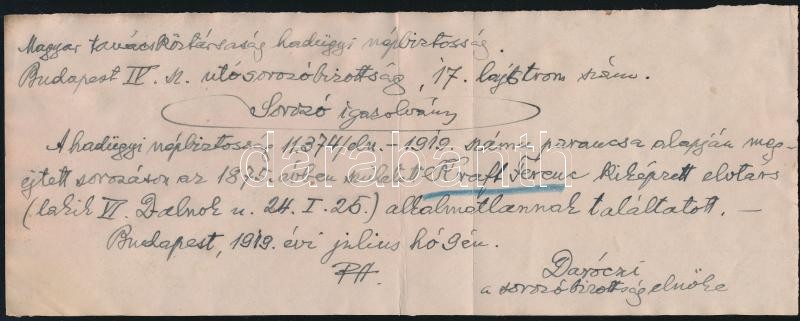 Magyar tanácsköztársaság hadügyi népbiztosság.
Budapest IV. sz. utósorozóbizottság, 17. lajstrom szám.
Sorozó igazolvány
A hadügyi népbiztosság 11.374/eln. - 1919. számú parancsa alapján meg-
ejtett sorozáson az 1875. évben született Kraft Ferenc kiképzett elvtárs
(lakik VI. Dalnok u. 24. I. 25.) alkalmatlannak találtatott. —
Budapest, 1919. évi július hó 9én.
P.H.
Daróczi
a sorozóbizottság elnöke
darabanth